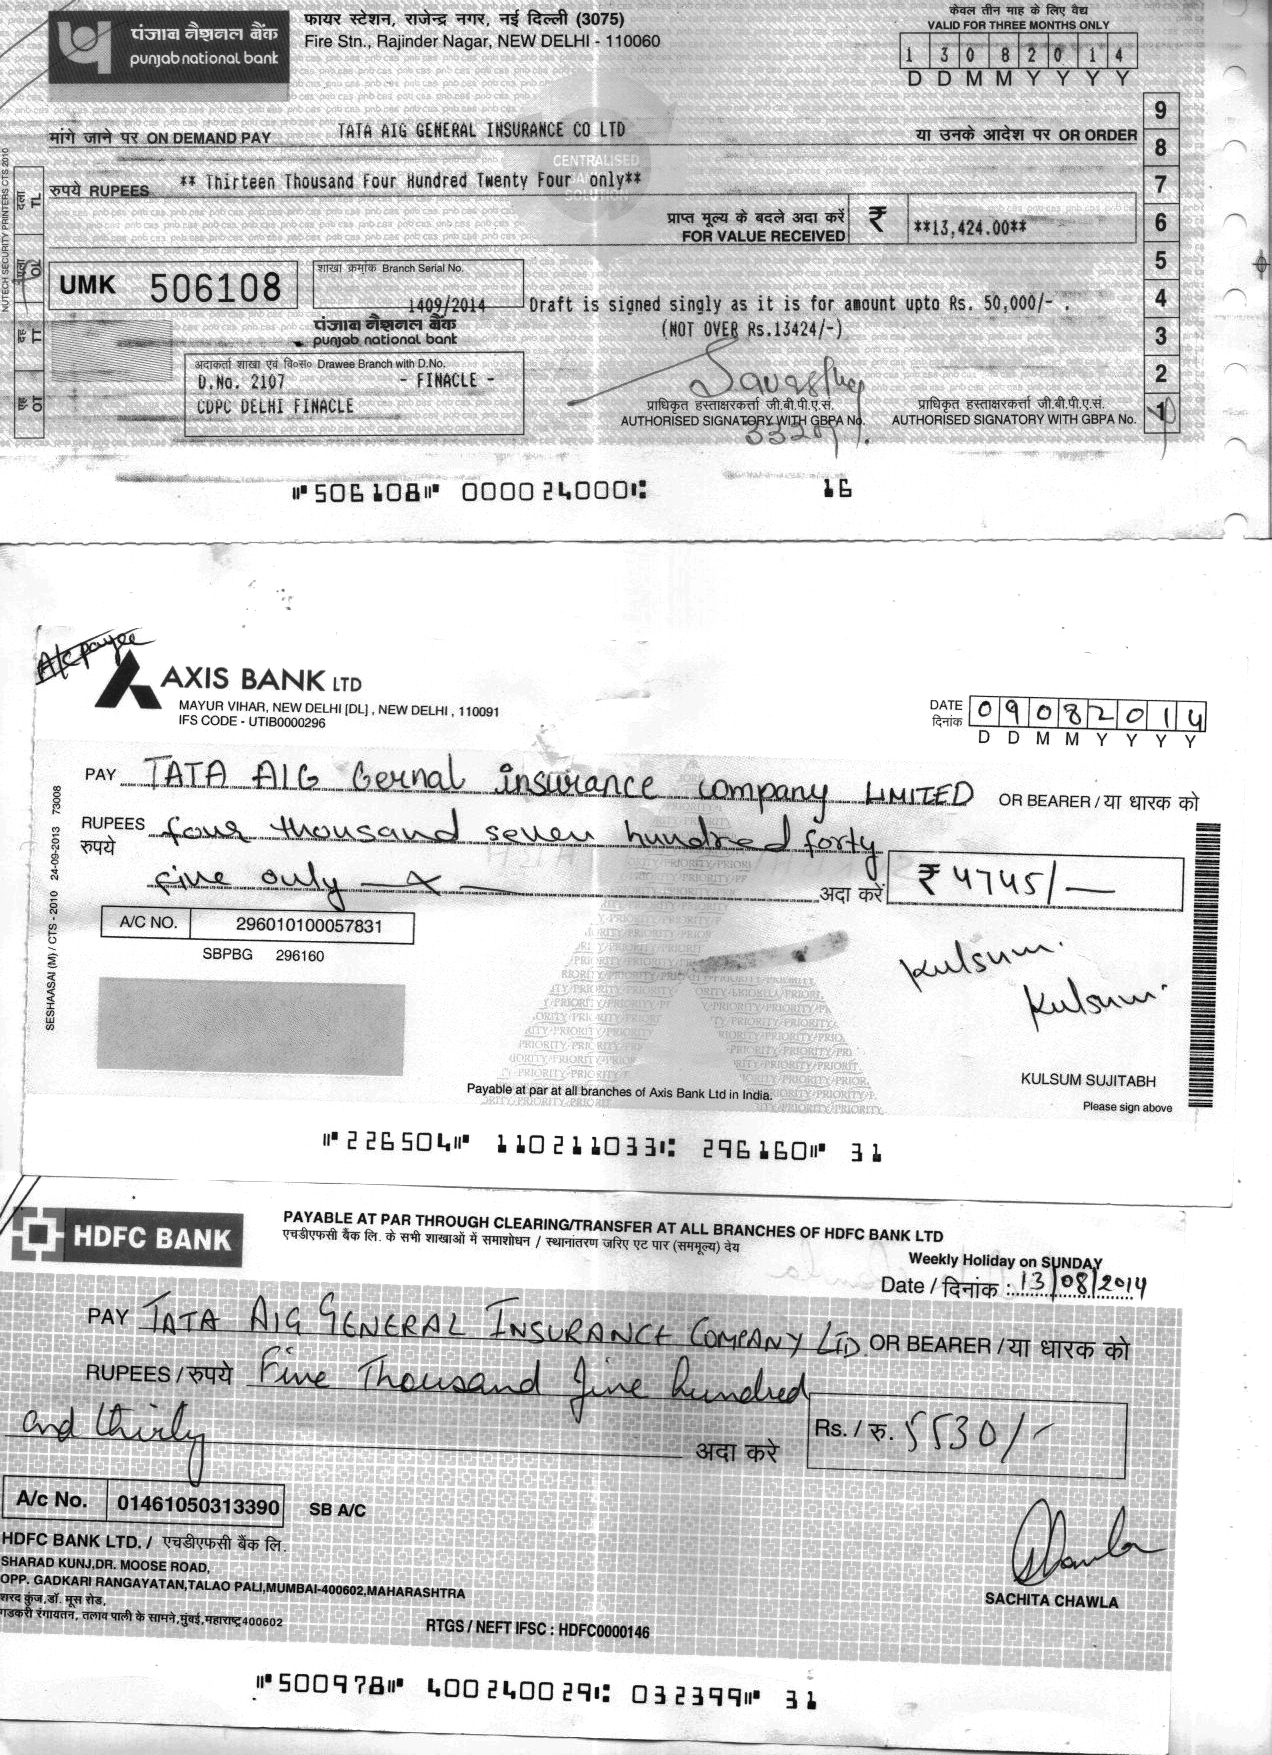 पंजाब नैशनल बैंक
punjab national bank
फायर स्टेशन, राजेन्द्र नगर, नई दिल्ली (3075)
Fire Stn., Rajinder Nagar, NEW DELHI - 110060
केवल तीन माह के लिए वैद्य
VALID FOR THREE MONTHS ONLY
1 3 0 8 2 0 1 4
D D M M Y Y Y Y
मांगे जाने पर ON DEMAND PAY TATA AIG GENERAL INSURANCE CO LTD या उनके आदेश पर OR ORDER
CENTRALISED
रुपये RUPEES ** Thirteen Thousand Four Hundred Twenty Four only**
प्राप्त मूल्य के बदले अदा करें
FOR VALUE RECEIVED ₹ **13,424.00**
9
8
7
6
5
4
3
2
1
NUTECH SECURITY PRINTERS CTS 2010
TL
OL
TT
OT
UMK 506108
शाखा क्रमांक Branch Serial No.
1409/2014
Draft is signed singly as it is for amount upto Rs. 50,000/- .
(NOT OVER Rs.13424/-)
पंजाब नैशनल बैंक
punjab national bank
अदाकर्ता शाखा एवं वि०सं० Drawee Branch with D.No.
D.No. 2107 - FINACLE -
CDPC DELHI FINACLE
प्राधिकृत हस्ताक्षरकर्त्ता जी.बी.पी.ए.सं.
AUTHORISED SIGNATORY WITH GBPA No.
प्राधिकृत हस्ताक्षरकर्त्ता जी.बी.पी.ए.सं.
AUTHORISED SIGNATORY WITH GBPA No.
⑈506108⑈ 000024000⑆ 16
A/c payee
AXIS BANK LTD
MAYUR VIHAR, NEW DELHI [DL] , NEW DELHI , 110091
IFS CODE - UTIB0000296
DATE
दिनांक
0 9 0 8 2 0 1 4
D D M M Y Y Y Y
PAY TATA AIG Gernal insurance company LIMITED OR BEARER / या धारक को
RUPEES four thousand seven hundred forty
रुपये
five only —x— अदा करें ₹ 4745/—
A/C NO. 296010100057831
SBPBG 296160
SESHAASAI (M) / CTS - 2010 24-09-2013 73008
Kulsum.
Kulsum.
KULSUM SUJITABH
Please sign above
Payable at par at all branches of Axis Bank Ltd in India.
⑈226504⑈ 110211033⑆ 296160⑈ 31
HDFC BANK
PAYABLE AT PAR THROUGH CLEARING/TRANSFER AT ALL BRANCHES OF HDFC BANK LTD
एचडीएफसी बैंक लि. के सभी शाखाओं में समाशोधन / स्थानांतरण जरिए एट पार (सममूल्य) देय
Weekly Holiday on SUNDAY
Date / दिनांक : 13/08/2014
PAY TATA AIG GENERAL INSURANCE COMPANY LTD OR BEARER / या धारक को
RUPEES / रुपये Five Thousand five hundred
and thirty अदा करे Rs. / रु. 5530/-
A/c No. 01461050313390 SB A/C
HDFC BANK LTD. / एचडीएफसी बैंक लि.
SHARAD KUNJ,DR. MOOSE ROAD,
OPP. GADKARI RANGAYATAN,TALAO PALI,MUMBAI-400602,MAHARASHTRA
शरद कुंज,डॉ. मूस रोड,
गडकरी रंगायतन, तलाव पाली के सामने,मुंबई,महाराष्ट्र400602
RTGS / NEFT IFSC : HDFC0000146
Chawla
SACHITA CHAWLA
⑈500978⑈ 400240029⑆ 032399⑈ 31